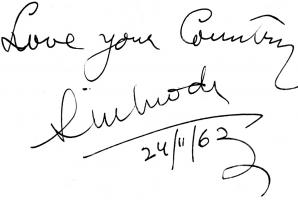 Love your Country
24/11/62